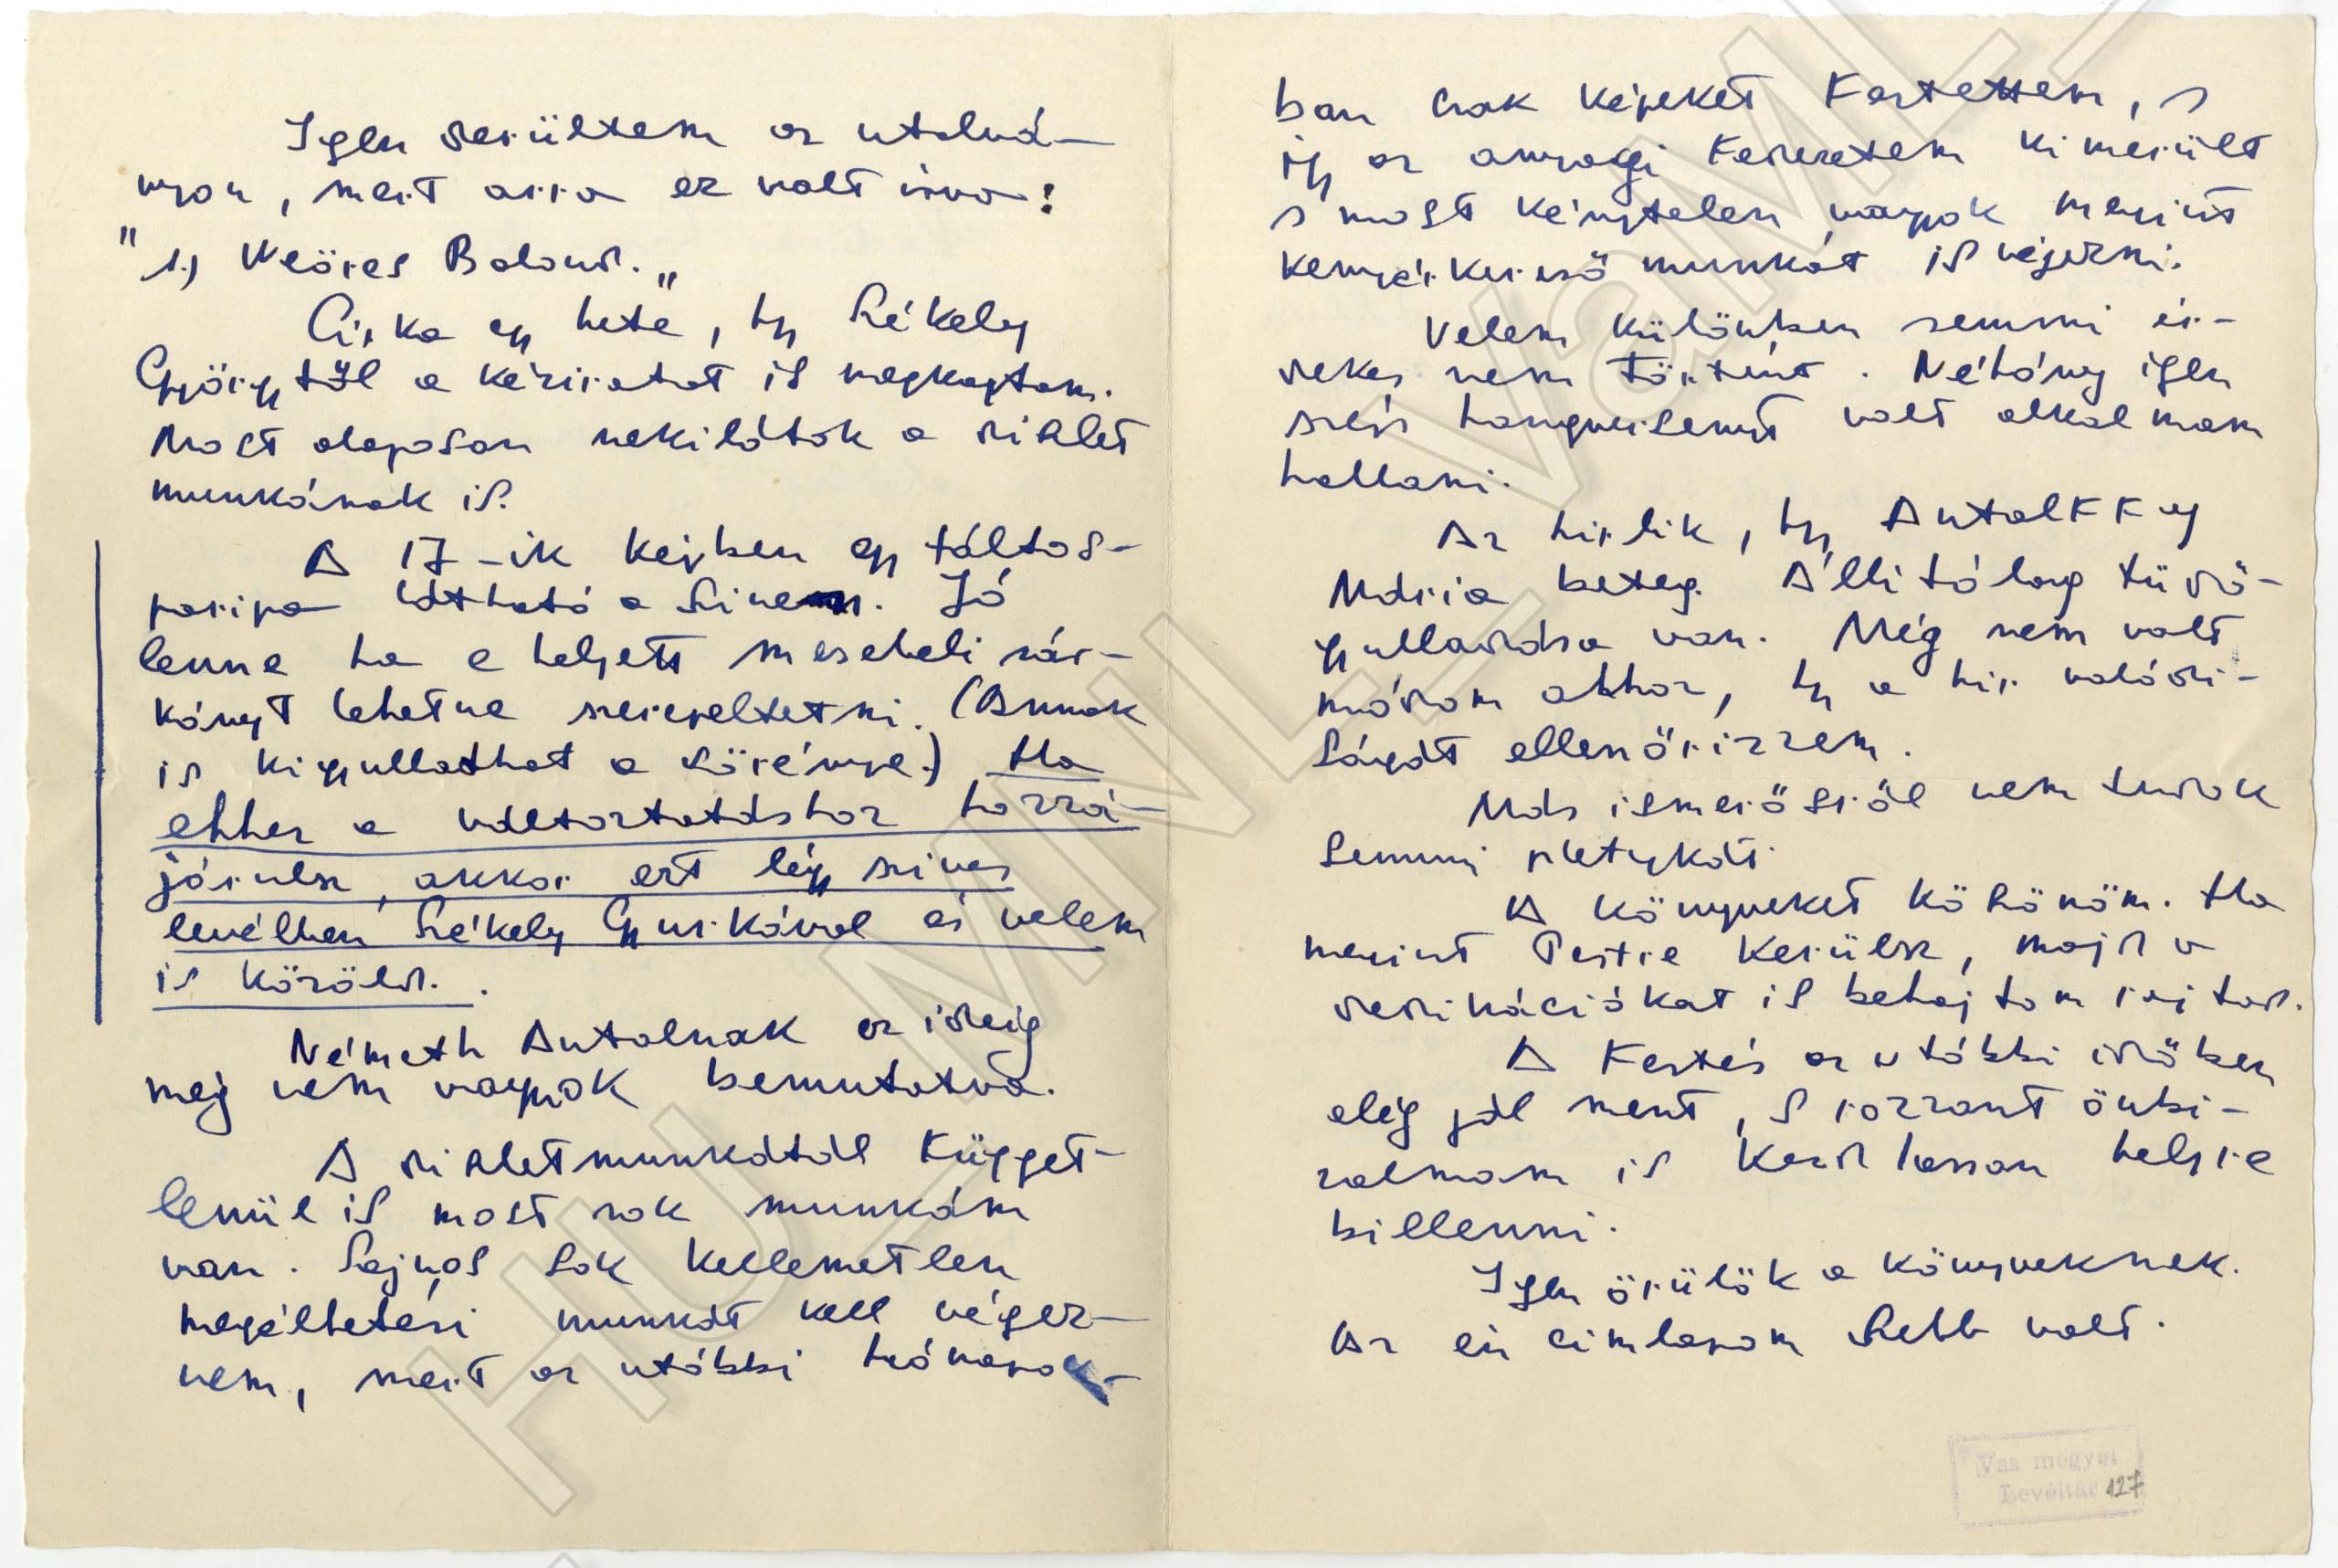 Igen derültem az utalvá-
nyon, mert arra ez volt írva:
"1.) Weöres Balázs."
Cirka egy hete, hgy Székely
Györgytől a kéziratot is megkaptam.
Most alaposan nekilátok a díszlet
munkának is.
A 17-ik képben egy táltos-
paripa látható a színen. Jó
lenne ha e helyett mesebeli sár-
kányt lehetne szerepeltetni. (Annak
is kigyulladhat a sörénye.) Ha
ehhez a változtatáshoz hozzá-
járulsz, akkor ezt légy szíves
levélben Székely Gyurkával és velem
is közöld.
Németh Antalnak ez ideig
még nem vagyok bemutatva.
A díszletmunkától függet-
lenül is most sok munkám
van. Sajnos sok kellemetlen
megélhetési munkát kell végez-
nem, mert az utóbbi hónapok-
ban csak képeket festettem, s
így az anyagi keretem kimerült
s most kénytelen vagyok megint
kenyérkereső munkát is végezni.
Velem különben semmi ér-
dekes nem történt. Néhány igen
szép hangversenyt volt alkalmam
hallani.
Az hirlik, hgy Antalffy
Mária beteg. Állítólag tüdő-
gyulladása van. Még nem volt
módom ahhoz, hgy a hír valódi-
ságát ellenőrizzem.
Más ismerősről nem tudok
semmi pletykát.
A könyveket köszönöm. Ha
megint Pestre kerülsz, majd a
dedikációkat is behajtom rajtad.
A festés az utóbbi időben
elég jól ment, s rozzant önbi-
zalmam is kezd lassan helyre
billenni.
Igen örülök a könyveknek.
Az én címlapom szebb volt.
Vas megyei
Levéltár 127
HU_MNL_VaML_